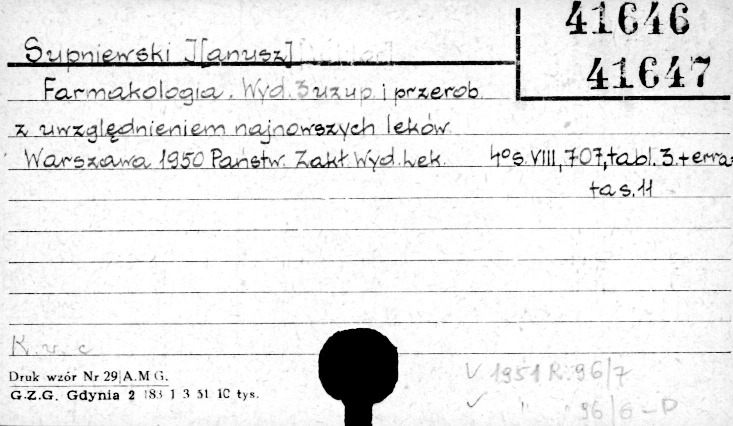 41646
41647
Supniewski J[anusz]
Farmakologia. Wyd. 3 uzup. i przerob.
z uwzględnieniem najnowszych leków.
Warszawa 1950 Państw. Zakł. Wyd. Lek. 4° s. VIII, 707, tabl. 3. + erra-
ta s. 11
K. v. c
V 1951 R. 96/7
Druk wzór Nr 29 A.M G.
G.Z.G. Gdynia 2 183 1 3 51 10 tys.
96/6-D